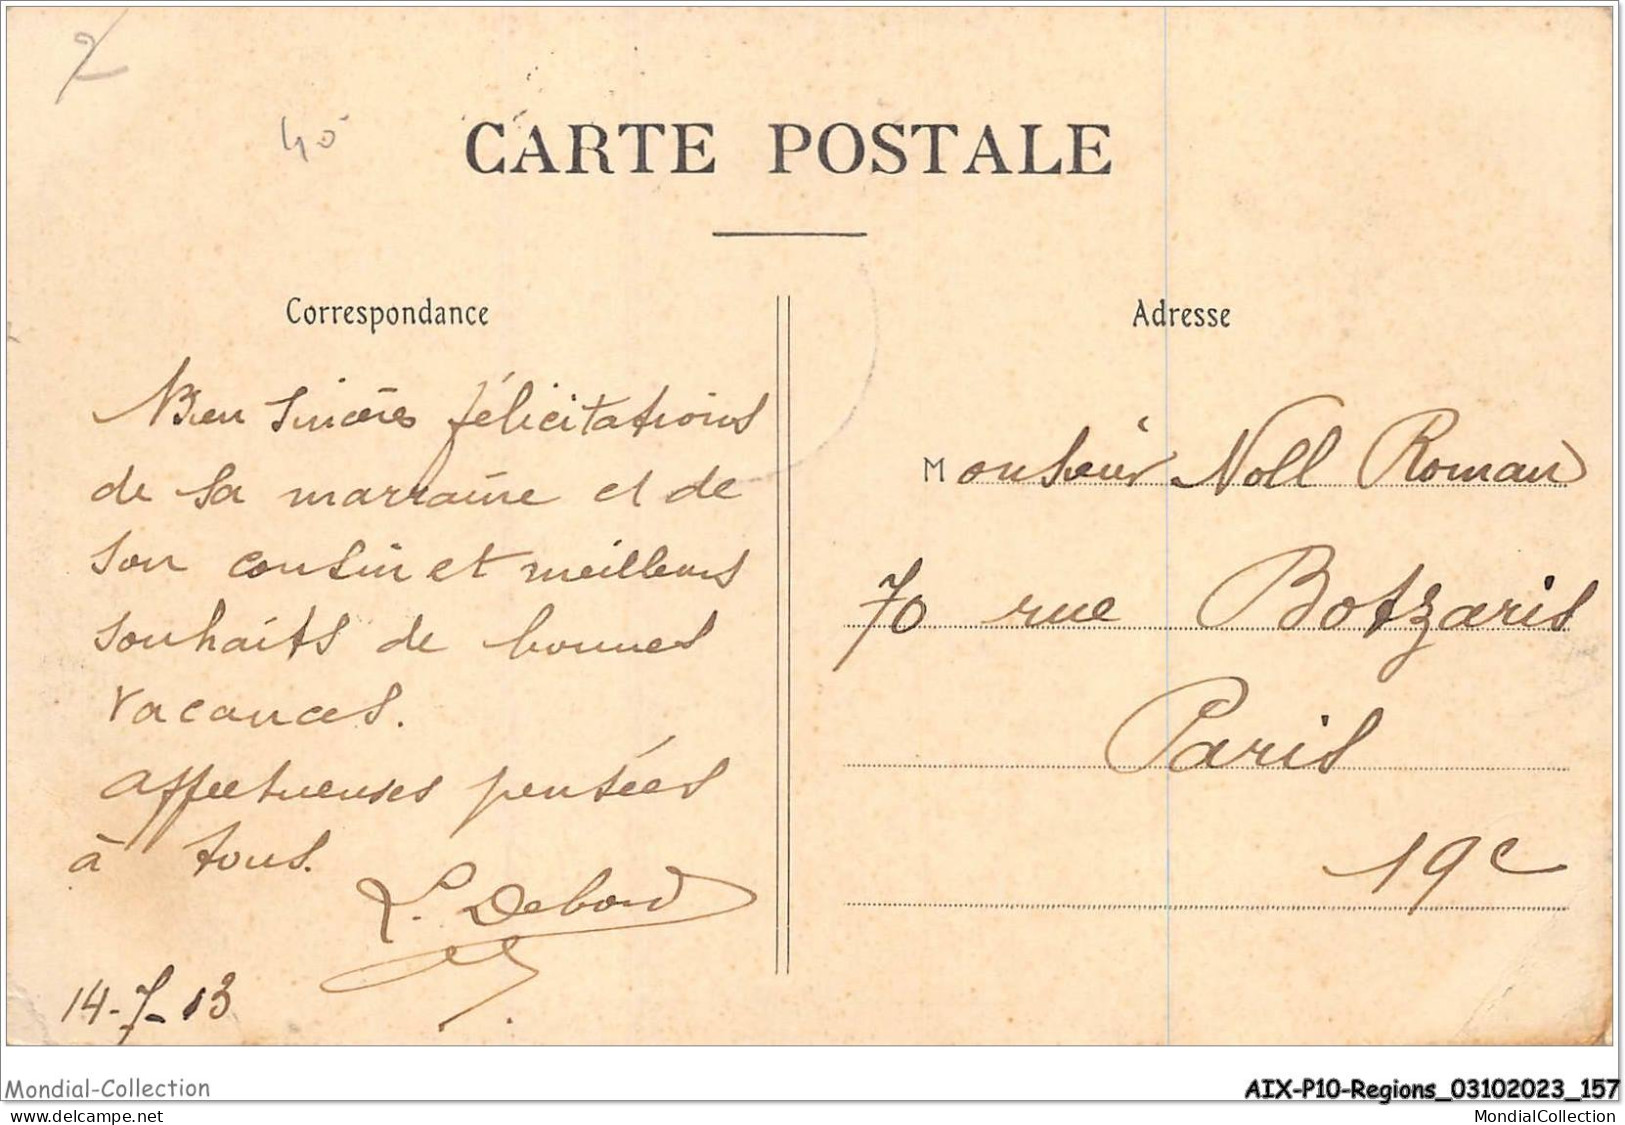 40
CARTE POSTALE
Correspondance
Bien sincères félicitations
de sa marraine et de
son cousin et meilleurs
souhaits de bonnes
vacances.
affectueuses pensées
à tous.
L. Debord
14-7-13
Adresse
Monsieur Noll Roman
70 rue Botzaris
Paris
19e
Mondial-Collection
AIX-P10-Regions_03102023_157
www.delcampe.net
MondialCollection